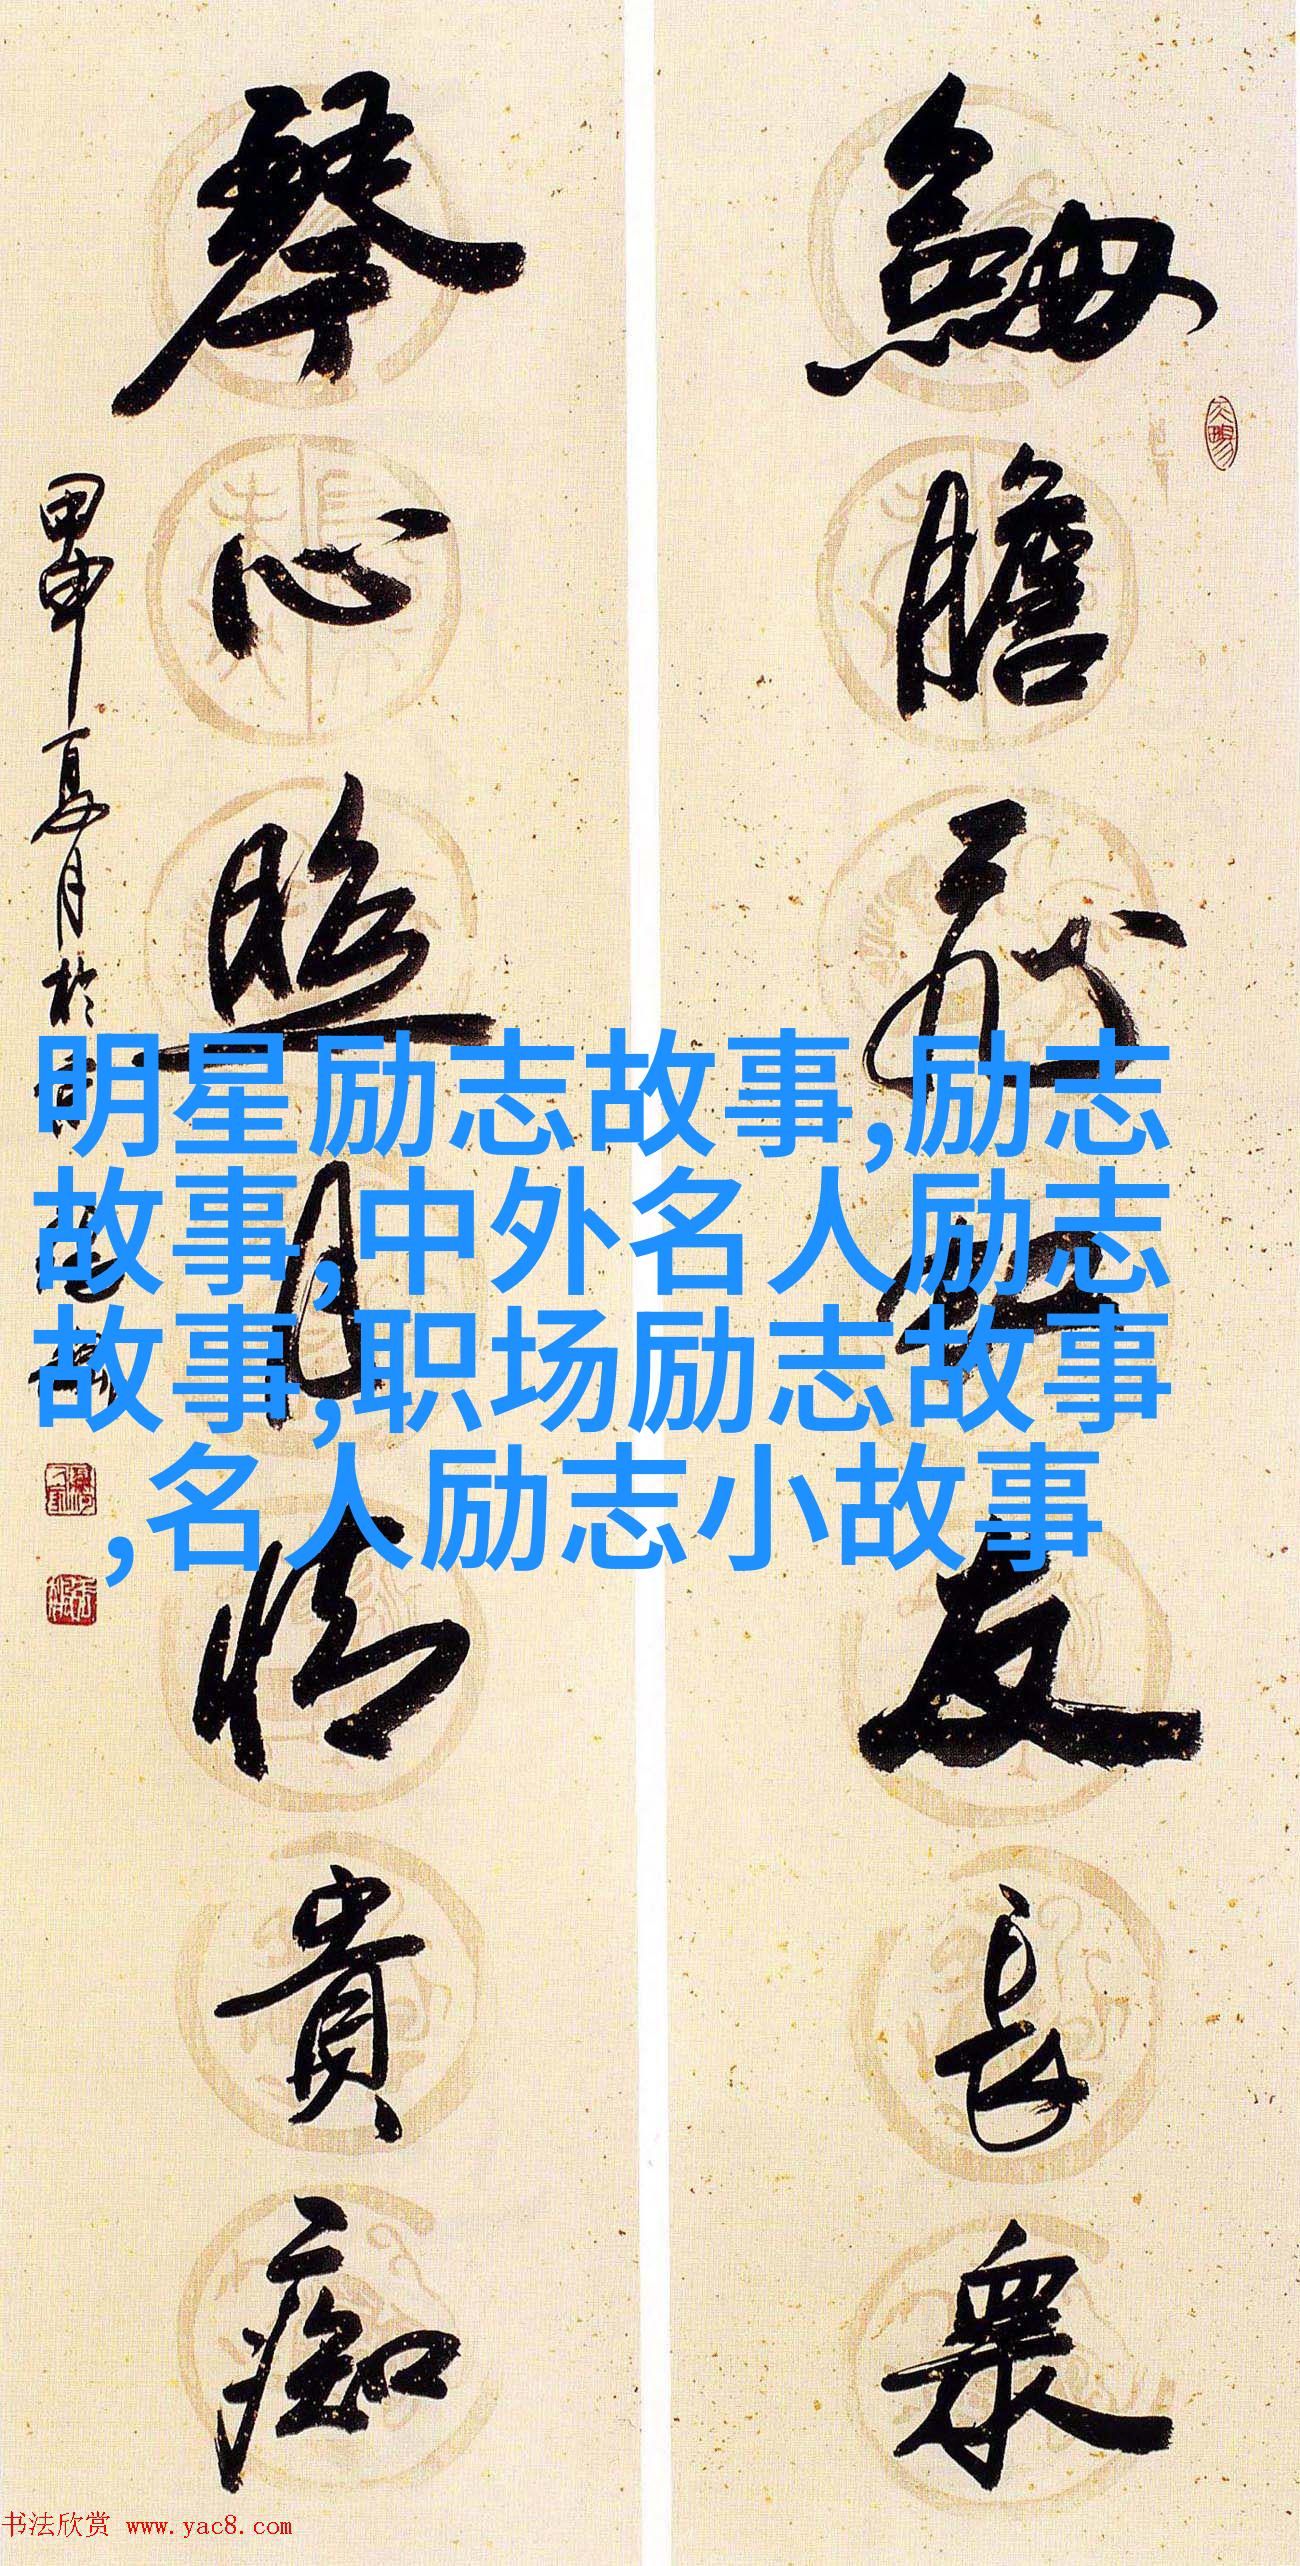 膽友長眾
琴心照月情貴痴
甲申夏月於
明星励志故事,励志
故事,中外名人励志
故事,职场励志故事
,名人励志小故事
书法欣赏 www.yac8.com